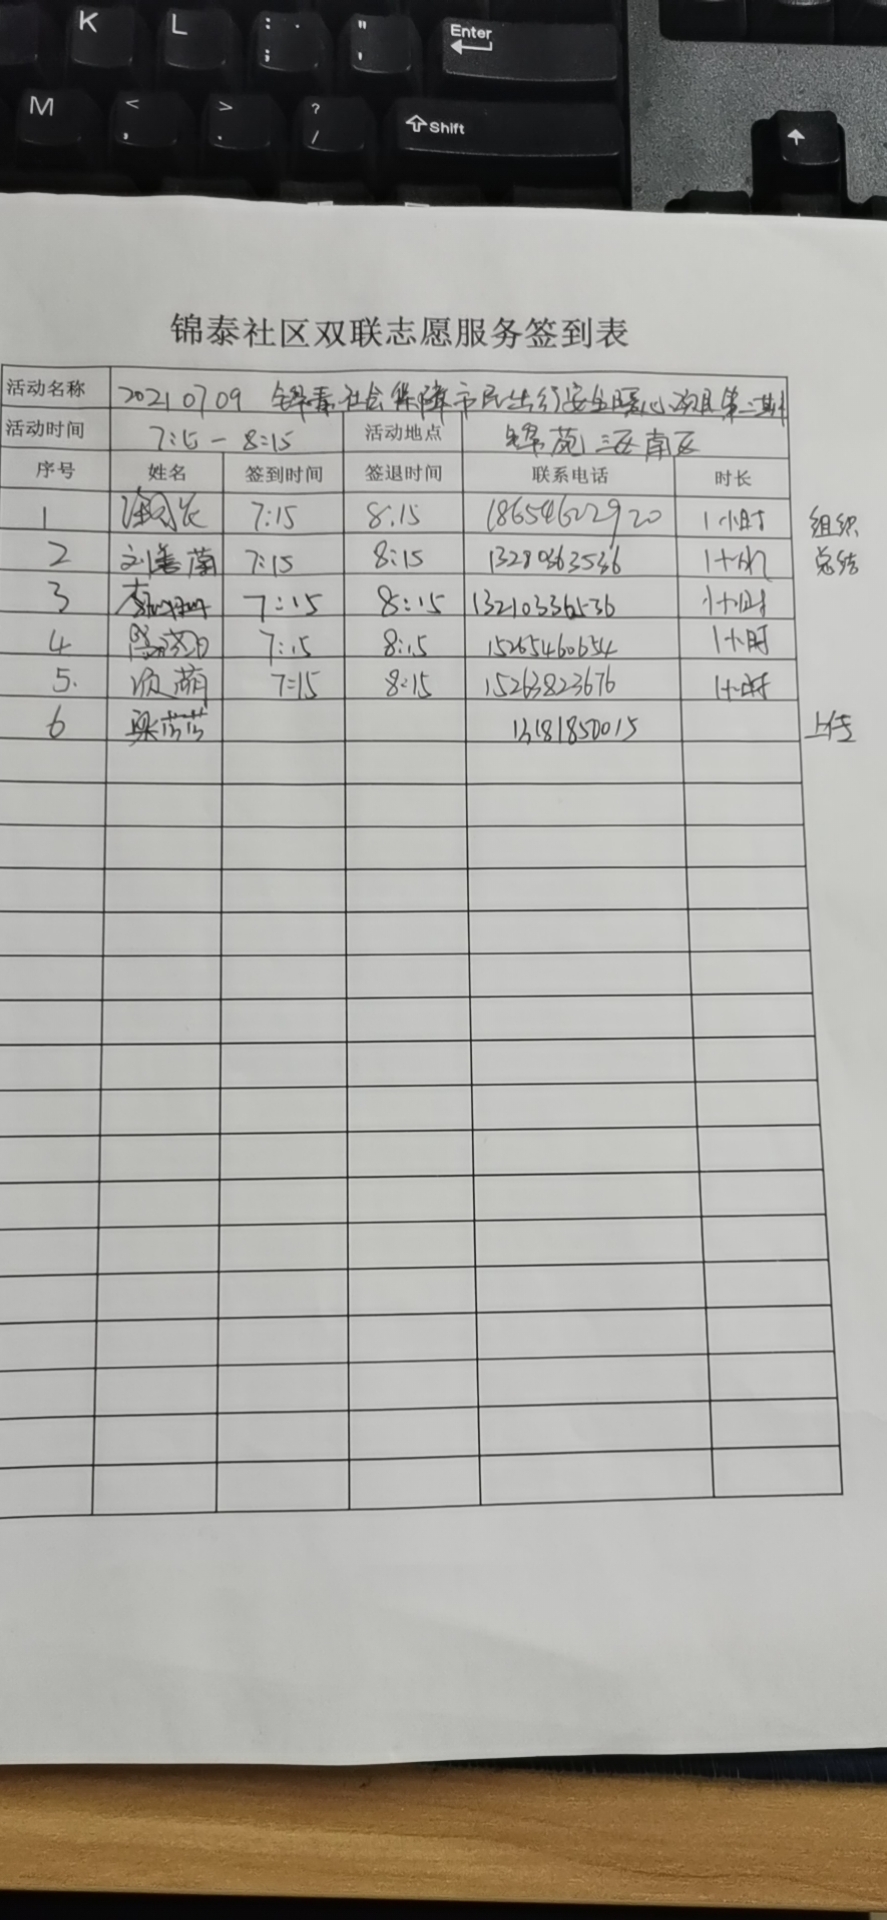 K L : ; " ' Enter
M < , > . ? / Shift
锦泰社区双联志愿服务签到表
活动名称 20210709 锦泰社会保障市民出行安全暖心项目第二期
活动时间 7:15-8:15 活动地点 锦苑三区南区
序号 姓名 签到时间 签退时间 联系电话 时长
1 7:15 8:15 18654602920 1小时 组织
2 7:15 8:15 13280363536 1小时 总结
3 7:15 8:15 13210336536 1小时
4 7:15 8:15 15265460654 1小时
5. 萌 7:15 8:15 15263823676 1小时
6 梁芳芳 13181850015 上传